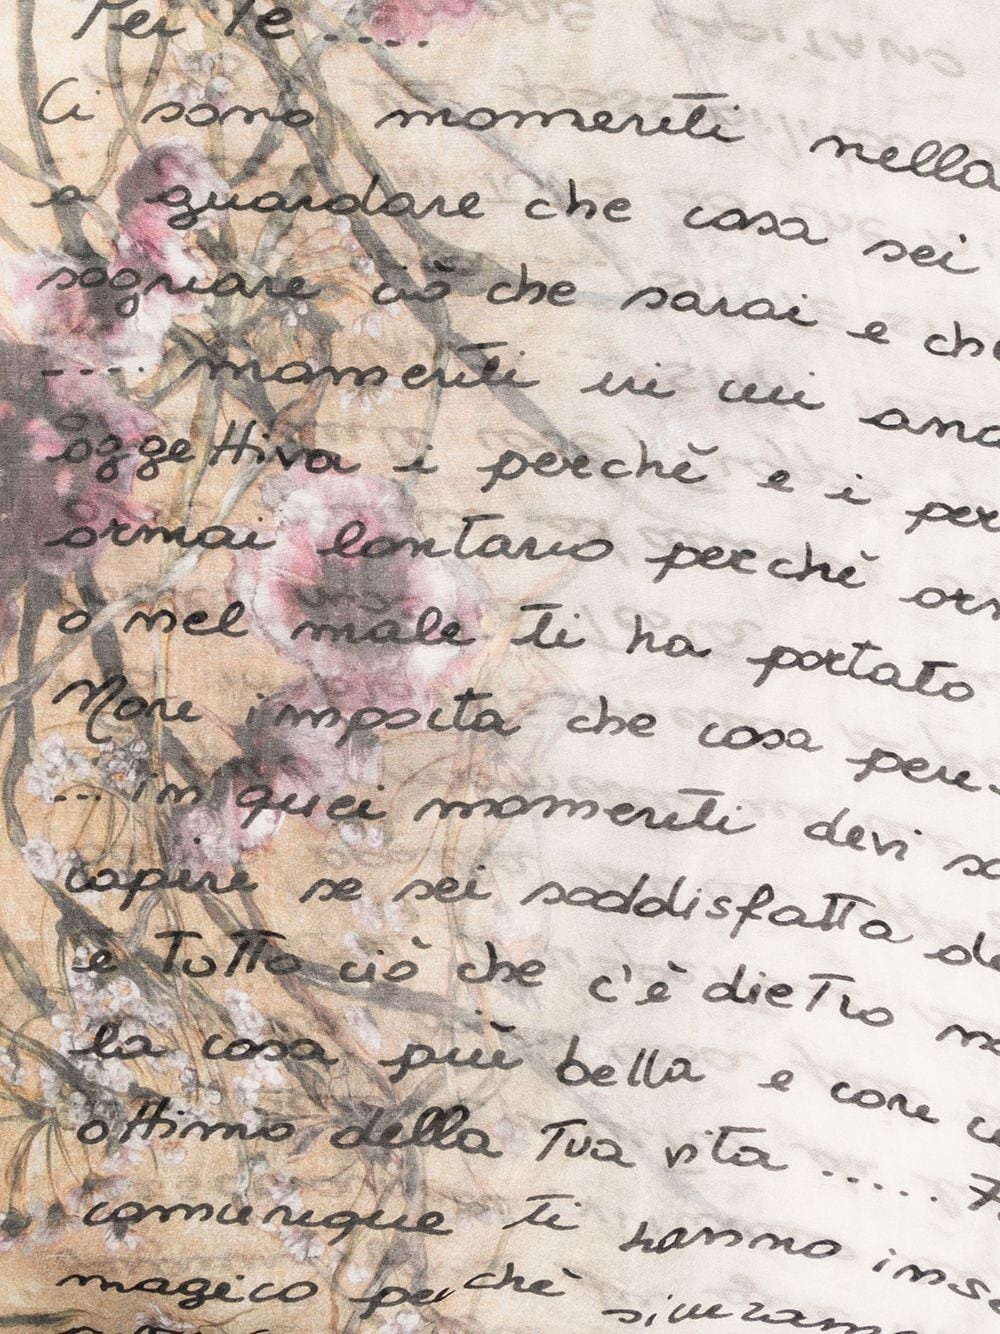 Per Te .....
Ci sono momenti nella
a guardare che cosa sei
sognare ciò che sarai e che
.... momenti in cui
oggettiva i perchè e i
ormai lontano perchè
o nel male ti ha portato
Non importa che cosa
... in quei momenti devi
capire se sei soddisfatta
e Tutto ciò che c'è dieTro
la cosa più bella e con
ottimo della Tua vita .....
comunque ti hanno
magico perchè